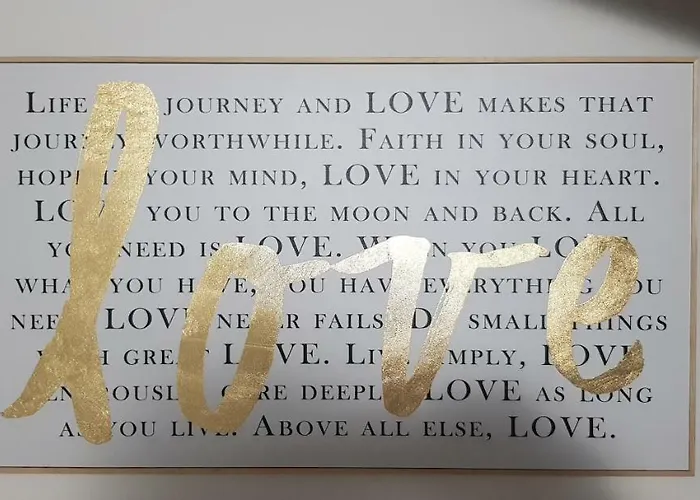 LIFE JOURNEY AND LOVE MAKES THAT
JOURNEY WORTHWHILE. FAITH IN YOUR SOUL,
HOPE IN YOUR MIND, LOVE IN YOUR HEART.
LOVE YOU TO THE MOON AND BACK. ALL
YOU NEED IS LOVE. WHEN YOU LOVE
WHAT YOU HAVE, YOU HAVE EVERYTHING YOU
NEED. LOVE NEVER FAILS. DO SMALL THINGS
WITH GREAT LOVE. LIVE SIMPLY, LOVE
GENEROUSLY, CARE DEEPLY. LOVE AS LONG
AS YOU LIVE. ABOVE ALL ELSE, LOVE.
love